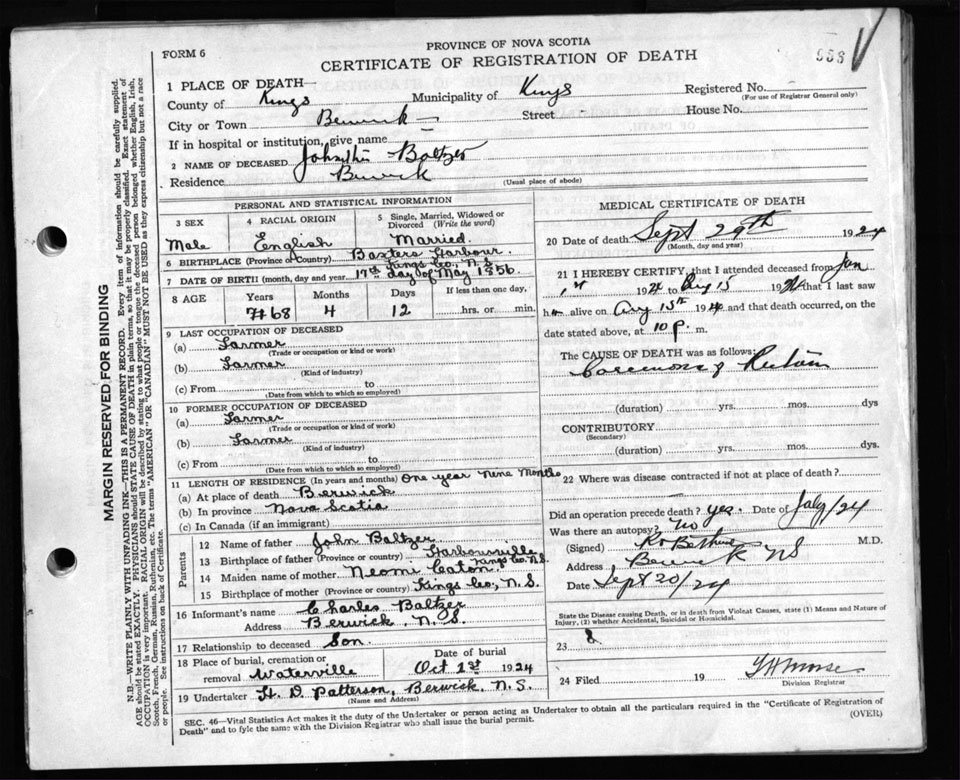 PROVINCE OF NOVA SCOTIA
FORM 6
CERTIFICATE OF REGISTRATION OF DEATH
1 PLACE OF DEATH—
Registered No.
(For use of Registrar General only)
County of Kings Municipality of Kings
City or Town Berwick Street House No.
If in hospital or institution, give name
2 NAME OF DECEASED Baltzer
Residence Berwick
(Usual place of abode)
PERSONAL AND STATISTICAL INFORMATION
3 SEX
Male
4 RACIAL ORIGIN
English
5 Single, Married, Widowed or Divorced (Write the word)
Married
6 BIRTHPLACE (Province or Country) Baxters Harbour
Kings Co., N.S.
7 DATE OF BIRTH (month, day and year) 17th day of May 1856
8 AGE
Years Months Days If less than one day,
68 4 12 hrs. or min.
9 LAST OCCUPATION OF DECEASED
(a) Farmer
(Trade or occupation or kind or work)
(b) Farmer
(Kind of industry)
(c) From to
(Date from which to which so employed)
10 FORMER OCCUPATION OF DECEASED
(a) Farmer
(Trade or occupation or kind of work)
(b) Farmer
(Kind of industry)
(c) From to
(Date from which to which so employed)
11 LENGTH OF RESIDENCE (In years and months) One year Nine Months
(a) At place of death Berwick
(b) In province Nova Scotia
(c) In Canada (if an immigrant)
Parents
12 Name of father John Baltzer
13 Birthplace of father (Province or country) Harbourville
Kings Co. N.S.
14 Maiden name of mother Neomi Eaton
15 Birthplace of mother (Province or country) Kings Co., N.S.
16 Informant's name Charles Baltzer
Address Berwick, N.S.
17 Relationship to deceased Son
18 Place of burial, cremation or removal Waterville
Date of burial
Oct 1st 1924
19 Undertaker H. D. Patterson, Berwick, N.S.
(Name and Address)
MEDICAL CERTIFICATE OF DEATH
20 Date of death Sept 29th 1924
(Month, day and year)
21 I HEREBY CERTIFY, that I attended deceased from Jan
1st 1924 to Aug 15 1924 that I last saw
him alive on Aug 15th 1924 and that death occurred, on
date stated above, at 10 p. m.
The CAUSE OF DEATH was as follows:
Carcinoma of Rectum
(duration) yrs. mos. dys
CONTRIBUTORY
(Secondary)
(duration) yrs. mos. dys.
22 Where was disease contracted if not at place of death?
Did an operation precede death? yes. Date of July/24
Was there an autopsy? no
(Signed) M.D.
Address Berwick NS
Date Sept 20/24
State the Disease causing Death, or in death from Violent Causes, state (1) Means and Nature of Injury, (2) whether Accidental, Suicidal or Homicidal.
23
24 Filed 19
Division Registrar
SEC. 46—Vital Statistics Act makes it the duty of the Undertaker or person acting as Undertaker to obtain all the particulars required in the "Certificate of Registration of
Death" and to fyle the same with the Division Registrar who shall issue the burial permit.
(OVER)
MARGIN RESERVED FOR BINDING
N.B.—WRITE PLAINLY WITH UNFADING INK—THIS IS A PERMANENT RECORD. Every item of information should be carefully supplied.
AGE should be stated EXACTLY. PHYSICIANS should STATE CAUSE OF DEATH in plain terms, so that it may be properly classified. Exact statement of
OCCUPATION is very important. RACIAL ORIGIN will be described by stating to what people or tongue the deceased person belonged whether English, Irish,
Scotch, French, German, Russian, Ruthenian, etc. The terms "AMERICAN" OR "CANADIAN" MUST NOT BE USED as they express citizenship but not a race
or people. See instructions on back of Certificate.